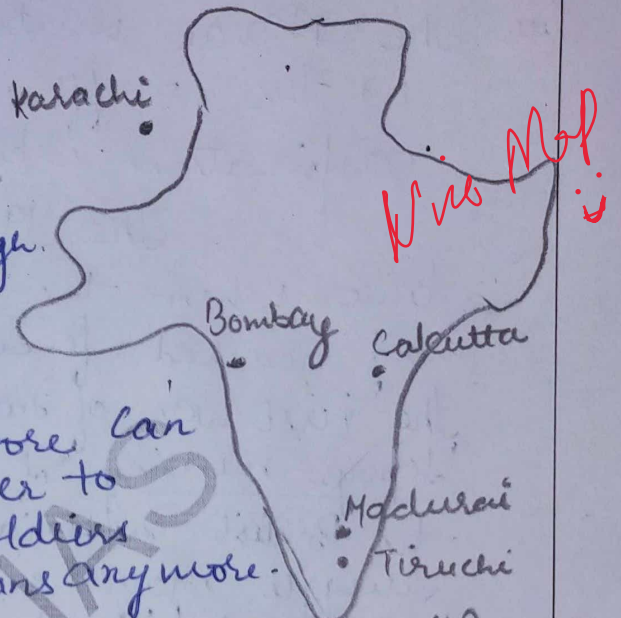 Karachi
Nice Map
Bombay
Calcutta
can
er to
ldiers
ns anymore.
Madurai
Tiruchi
IAS